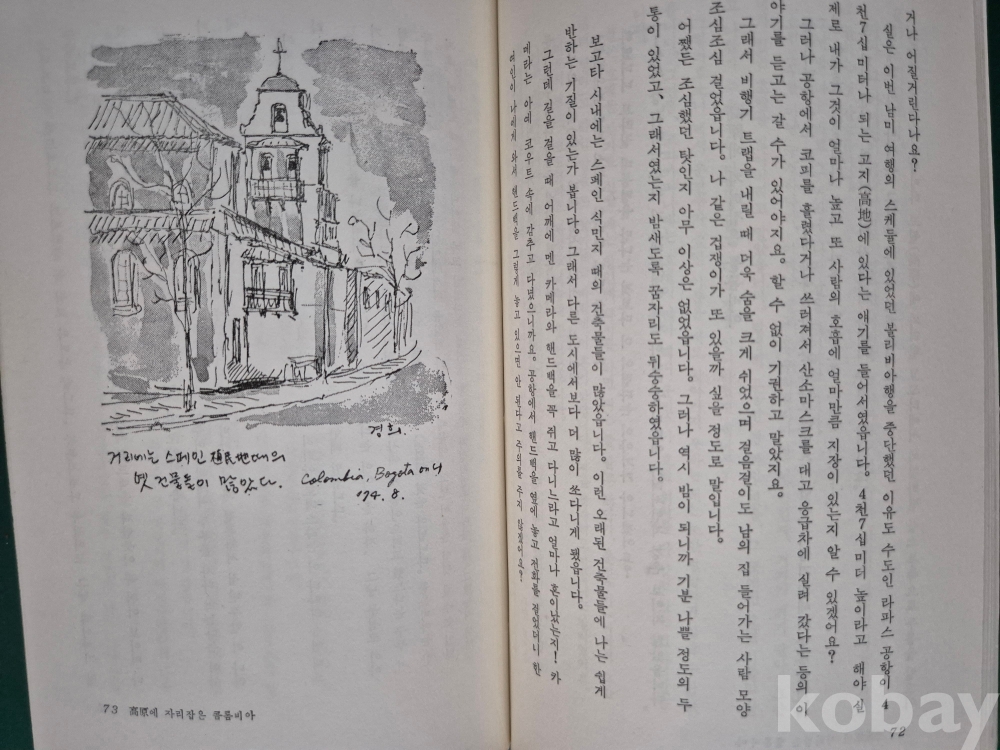 거나 어질거린다나요?
실은 이번 남미 여행의 스케줄에 있었던 볼리비아행을 중단했던 이유도 수도인 라파스 공항이 4
천7십 미터나 되는 고지(高地)에 있다는 얘기를 들어서였읍니다. 4천7십미터 높이라고 해야 실
제로 내가 그것이 얼마나 높고 또 사람의 호흡에 얼마만큼 지장이 있는지 알 수 있겠어요?
그러나 공항에서 코피를 흘렸다거나 쓰러져서 산소마스크를 대고 응급차에 실려 갔다는 등의 이
야기를 듣고는 갈 수가 있어야지요. 할 수 없이 기권하고 말았지요.
그래서 비행기 트랩을 내릴 때 더욱 숨을 크게 쉬었으며 걸음걸이도 남의 집 들어가는 사람 모양
조심조심 걸었읍니다. 나 같은 겁쟁이가 또 있을까 싶을 정도로 말입니다.
어쨌든 조심했던 탓인지 아무 이상은 없었읍니다. 그러나 역시 밤이 되니까 기분 나쁠 정도의 두
통이 있었고, 그래서였는지 밤새도록 꿈자리도 뒤숭숭하였읍니다.
보고타 시내에는 스페인 식민지 때의 건축물들이 많았읍니다. 이런 오래된 건축물들에 나는 쉽게
반하는 기질이 있는가 봅니다. 그래서 다른 도시에서보다 더 많이 쏘다니게 됐읍니다.
그런데 길을 걸을 때 어깨에 멘 카메라와 핸드백을 꼭 쥐고 다니느라고 얼마나 혼이 났는지! 카
메라는 아예 코우트 속에 감추고 다녔으니까요. 공항에서 핸드백을 옆에 놓고 전화를 걸었더니 한
여인이 나에게 와서 핸드백을 그렇게 놓고 있으면 안 된다고 주의를 주지 않겠어요?
72
경희.
거리에는 스페인 植民地때의
옛 건물들이 많았다. Colombia, Bogota에서
'74. 8.
73 高原에 자리잡은 콜롬비아
kobay